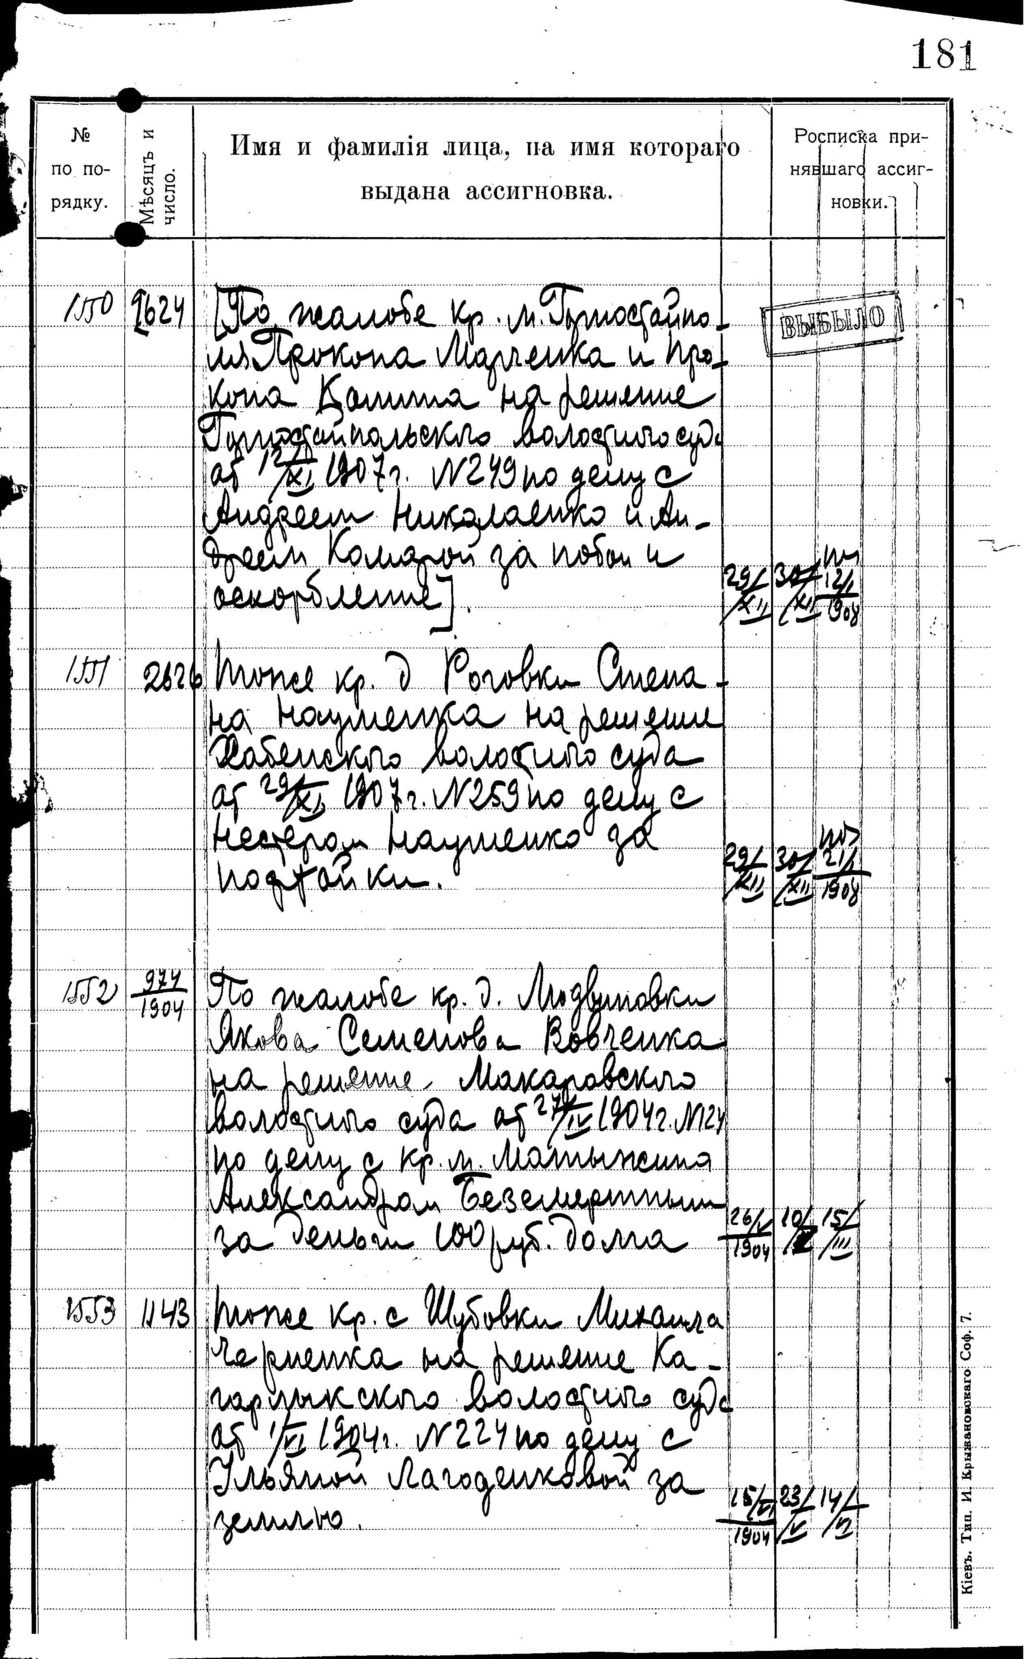 181
№ по порядку.
Мѣсяцъ и число.
Имя и фамилія лица, на имя котораго
выдана ассигновка.
Росписка при-
нявшаго ассиг-
новки.
1550 2624 [По жалобе кр. м. Горностайпо-
ля Прокопа Марченка и Про-
копа на решение
Горностайпольского волостного суда
от 12/XI 1907 г. N249 по делу с
Андреем Николаенко и Ан-
дреем Комарой за побои и
оскорбление].
ВЫБЫЛО
29/XII 30/XII 12/I 1908
1551 2626 Тоже кр. д Роговки Степа-
на Науменка на решение
Хабенского волостного суда
от 29/XI 1907 г. N259 по делу с
Нестером Науменко за
29/XII 30/XII 21/I 1908
1552 974/1904 По жалобе кр. д. Людвиновки
Якова Семенова Вовченка
на решение Макаровского
волостного суда от 27/IV 1904 г. N124
по делу с кр. м. Мотыжина
Александром Безсмертным
за деньги 100 руб. долга
26/V 1904 10/ 15/III
1553 1143 Тоже кр. с Шубовки Михаила
Черненка на решение Ка-
гарлыкского волостного суда
от 1/VI 1904 г. N224 по делу с
Ульяной Лагоденковой за
землю.
15/VI 1904 23/V 14/
Кіевъ. Тип. И. Крыжановскаго Соф. 7.